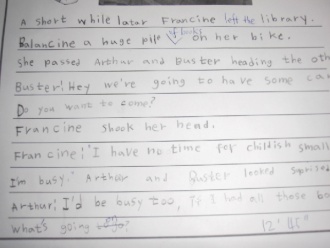 A short while later Francine left the library.
Balancine a huge pile of books on her bike.
she passed Arthur and Buster heading the oth
Buster: Hey we're going to have some ca
Do you want to come?
Francine shook her head.
Francine: "I have no time for childish small
I'm busy." Arthur and Buster looked suprised
Arthur: I'd be busy too, if I had all those bo
What's going on